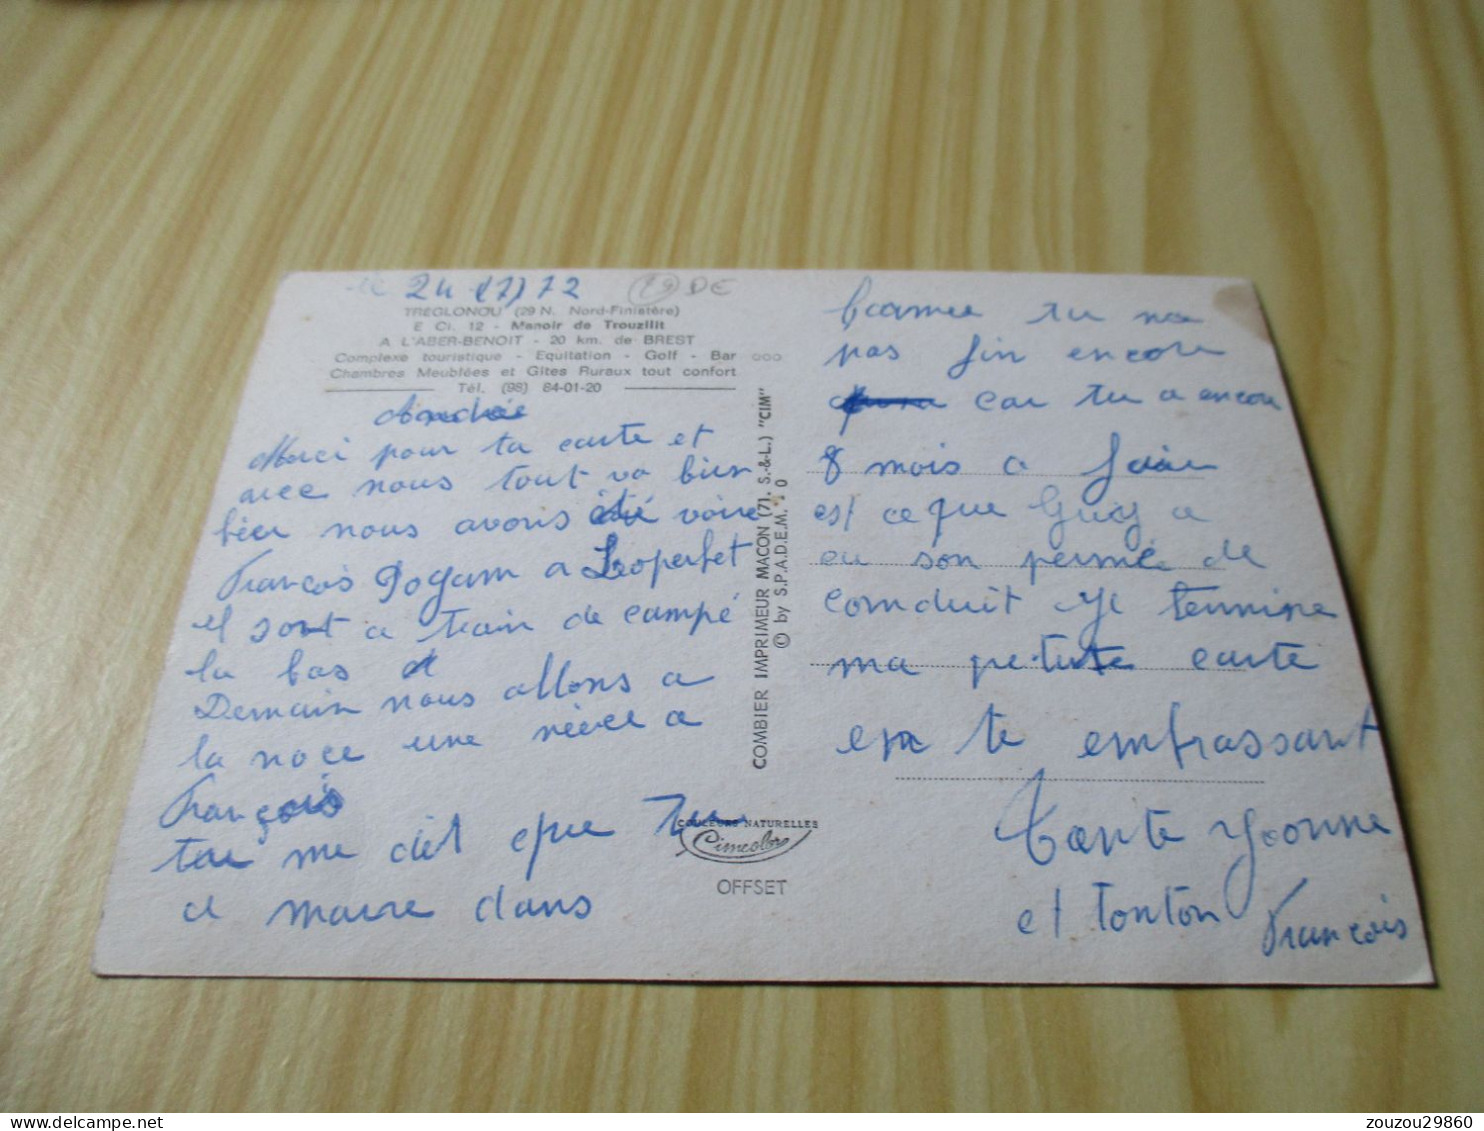 le 24 (7) 72
29 DE
TREGLONOU (29 N. Nord-Finistère)
E Ci. 12 - Manoir de Trouzilit
A L'ABER-BENOIT - 20 km. de BREST
Complexe touristique - Equitation - Golf - Bar ooo
Chambres Meublées et Gîtes Ruraux tout confort
Tél. (98) 84-01-20
Andrée
Merci pour ta carte et
avec nous tout va bien
hier nous avons été voire
Francois Pogam a Loperhet
il sont a train de campé
la bas
Demain nous allons a
la noce une niéce a
François
tu me dit que Tu
a marre dans
COMBIER IMPRIMEUR MACON (71. S.-&-L.) "CIM"
© by S.P.A.D.E.M. 10
COULEURS NATURELLES
Cimcolor
OFFSET
tu na
pas fin encore
car tu a encore
8 mois a faire
est ce que Guy a
eu son permée de
conduit Je termine
ma petite carte
en te embrassant
Tante Yvonne
et Tonton Francois
zouzou29860